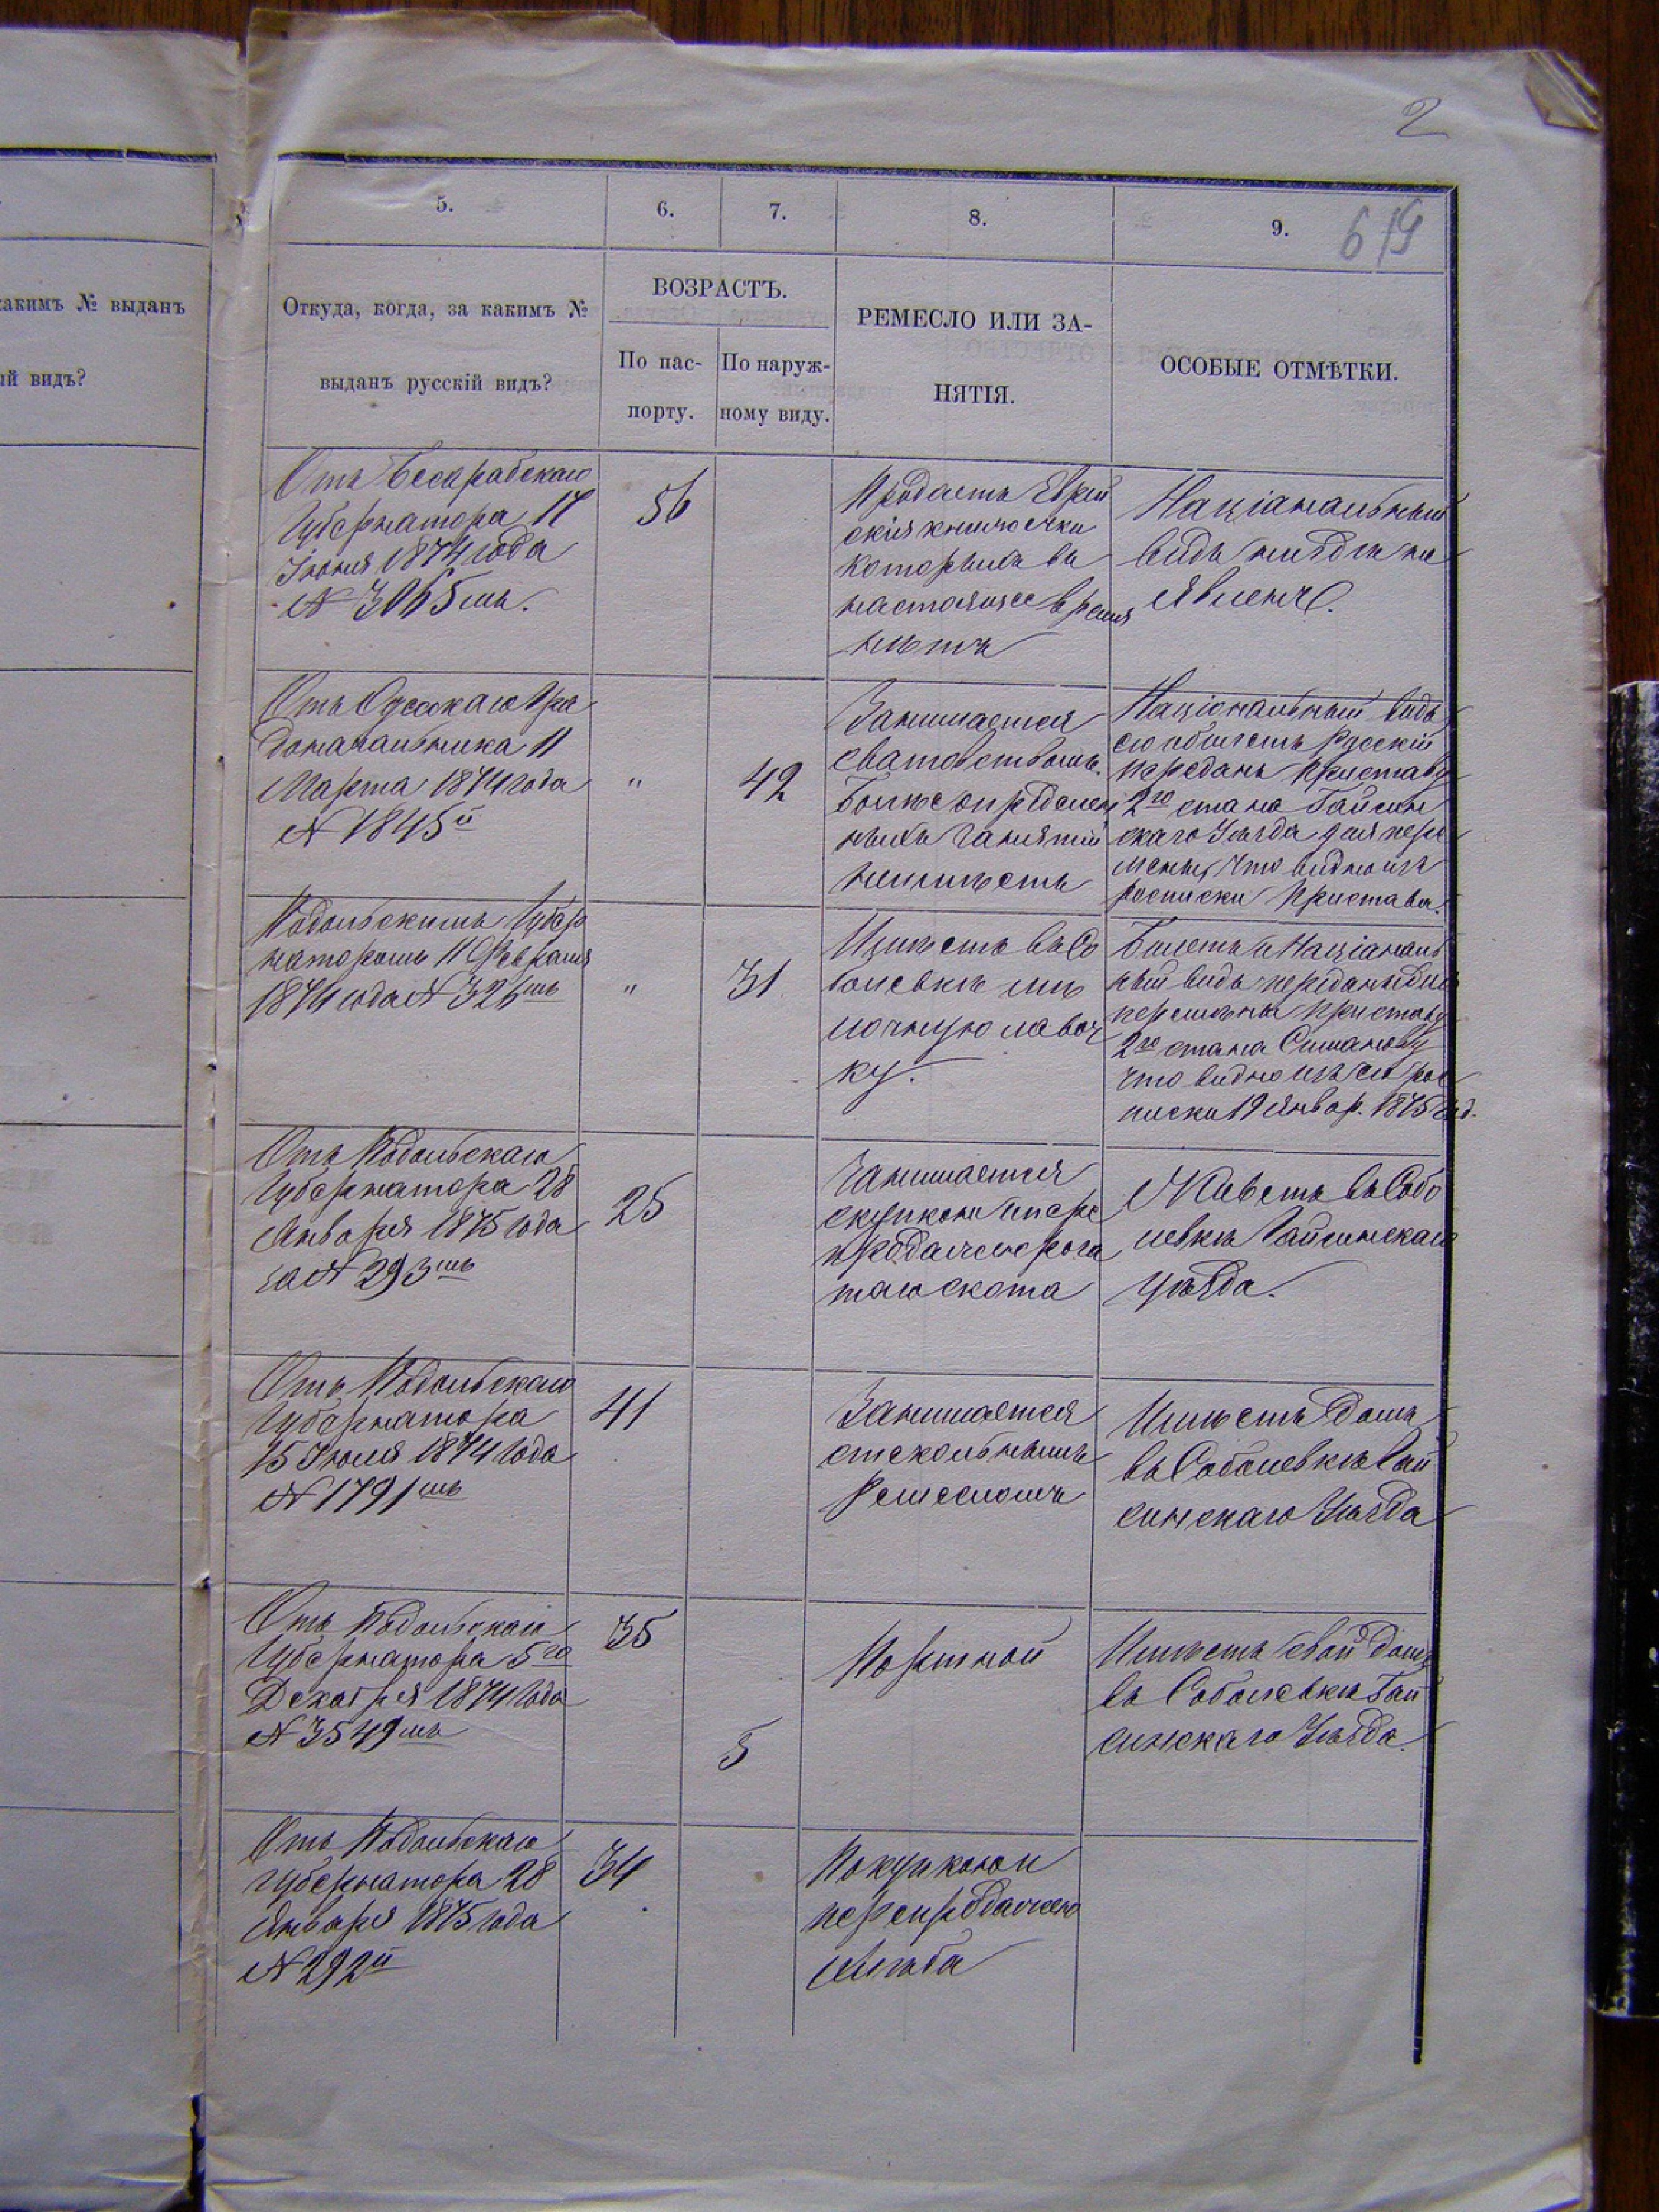 2
619
5.
6.
7.
8.
9.
какимъ № выданъ
ый видъ?
Откуда, когда, за какимъ №
выданъ русскій видъ?
ВОЗРАСТЪ.
По пас-
порту.
По наруж-
ному виду.
РЕМЕСЛО ИЛИ ЗА-
НЯТІЯ.
ОСОБЫЕ ОТМѢТКИ.
Отъ Бесарабскаго
Губернатора 17
Іюня 1874 года
№ 3065мъ.
56
Продаетъ Еврей
скія книжечки
которыхъ въ
настоящее время
нѣтъ
Націанальный
видъ нигдѣ не
явленъ.
Отъ Одесскаго Гра
доначальника 11
Марта 1874 года
№ 1845й
"
42
Занимается
сватовствомъ.
Болѣе опредѣлен
ныхъ занятій
неимѣетъ
Національный видъ
его и билетъ Русскій
переданъ Приставу
2го стана Гайсин
скаго Уѣзда для пере
мены, что видно изъ
росписки Пристава.
Подольскимъ Губер
наторомъ 11 Февраля
1874 года № 326мъ
"
31
Имѣетъ въ Со
болевкѣ мѣ
лочную лавоч
ку.
Билетъ и Націанал
ный видъ переданы для
перемены Приставу
2го стана Симанову
что видно изъ его рос
писки 19 Январ. 1875 год.
Отъ Подольскаго
Губернатора 28
Января 1875 года
за № 293мъ
25
Занимается
скупкою и пере
продажею рога
таго скота
Живетъ въ Собо
левкѣ Гайсинскаго
уѣзда.
Отъ Подольскаго
Губернатора
15 Іюля 1874 года
№ 1791мъ
41
Занимается
стекольнымъ
Ремесломъ
Имѣетъ домъ
въ Соболевкѣ Гай
синскаго Уѣзда
Отъ Подольскаго
Губернатора 5го
Декабря 1874 года
№ 3549мъ
35
5
Портной
Имѣетъ свой домъ
въ Соболевкѣ Гай
синскаго Уѣзда.
Отъ Подольскаго
Губернатора 28
Января 1875 года
№ 292й
34
Покупкою и
перепродажею
хлѣба